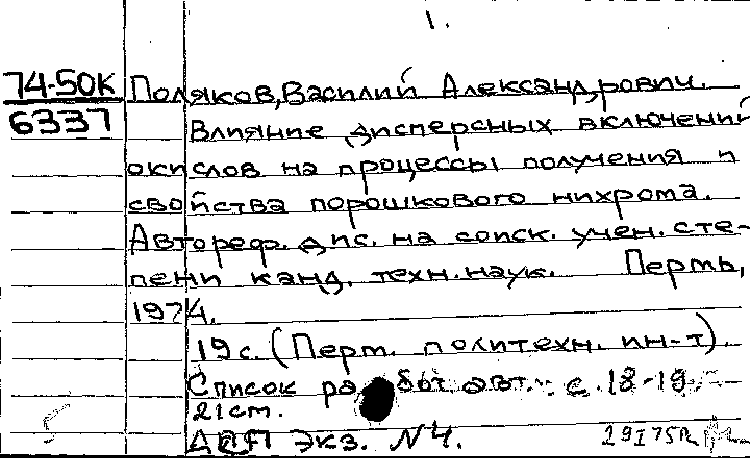 1.
74-50К Поляков, Василий Александрович.
6337 Влияние дисперсных включений
окислов на процессы получения и
свойства порошкового нихрома.
Автореф. дис. на соиск. учен. сте-
пени канд. техн. наук. Пермь,
1974.
19 с. (Перм. политехн. ин-т).
Список работ авт.: с. 18-19
21 см.
Экз. №4.
29 I 75